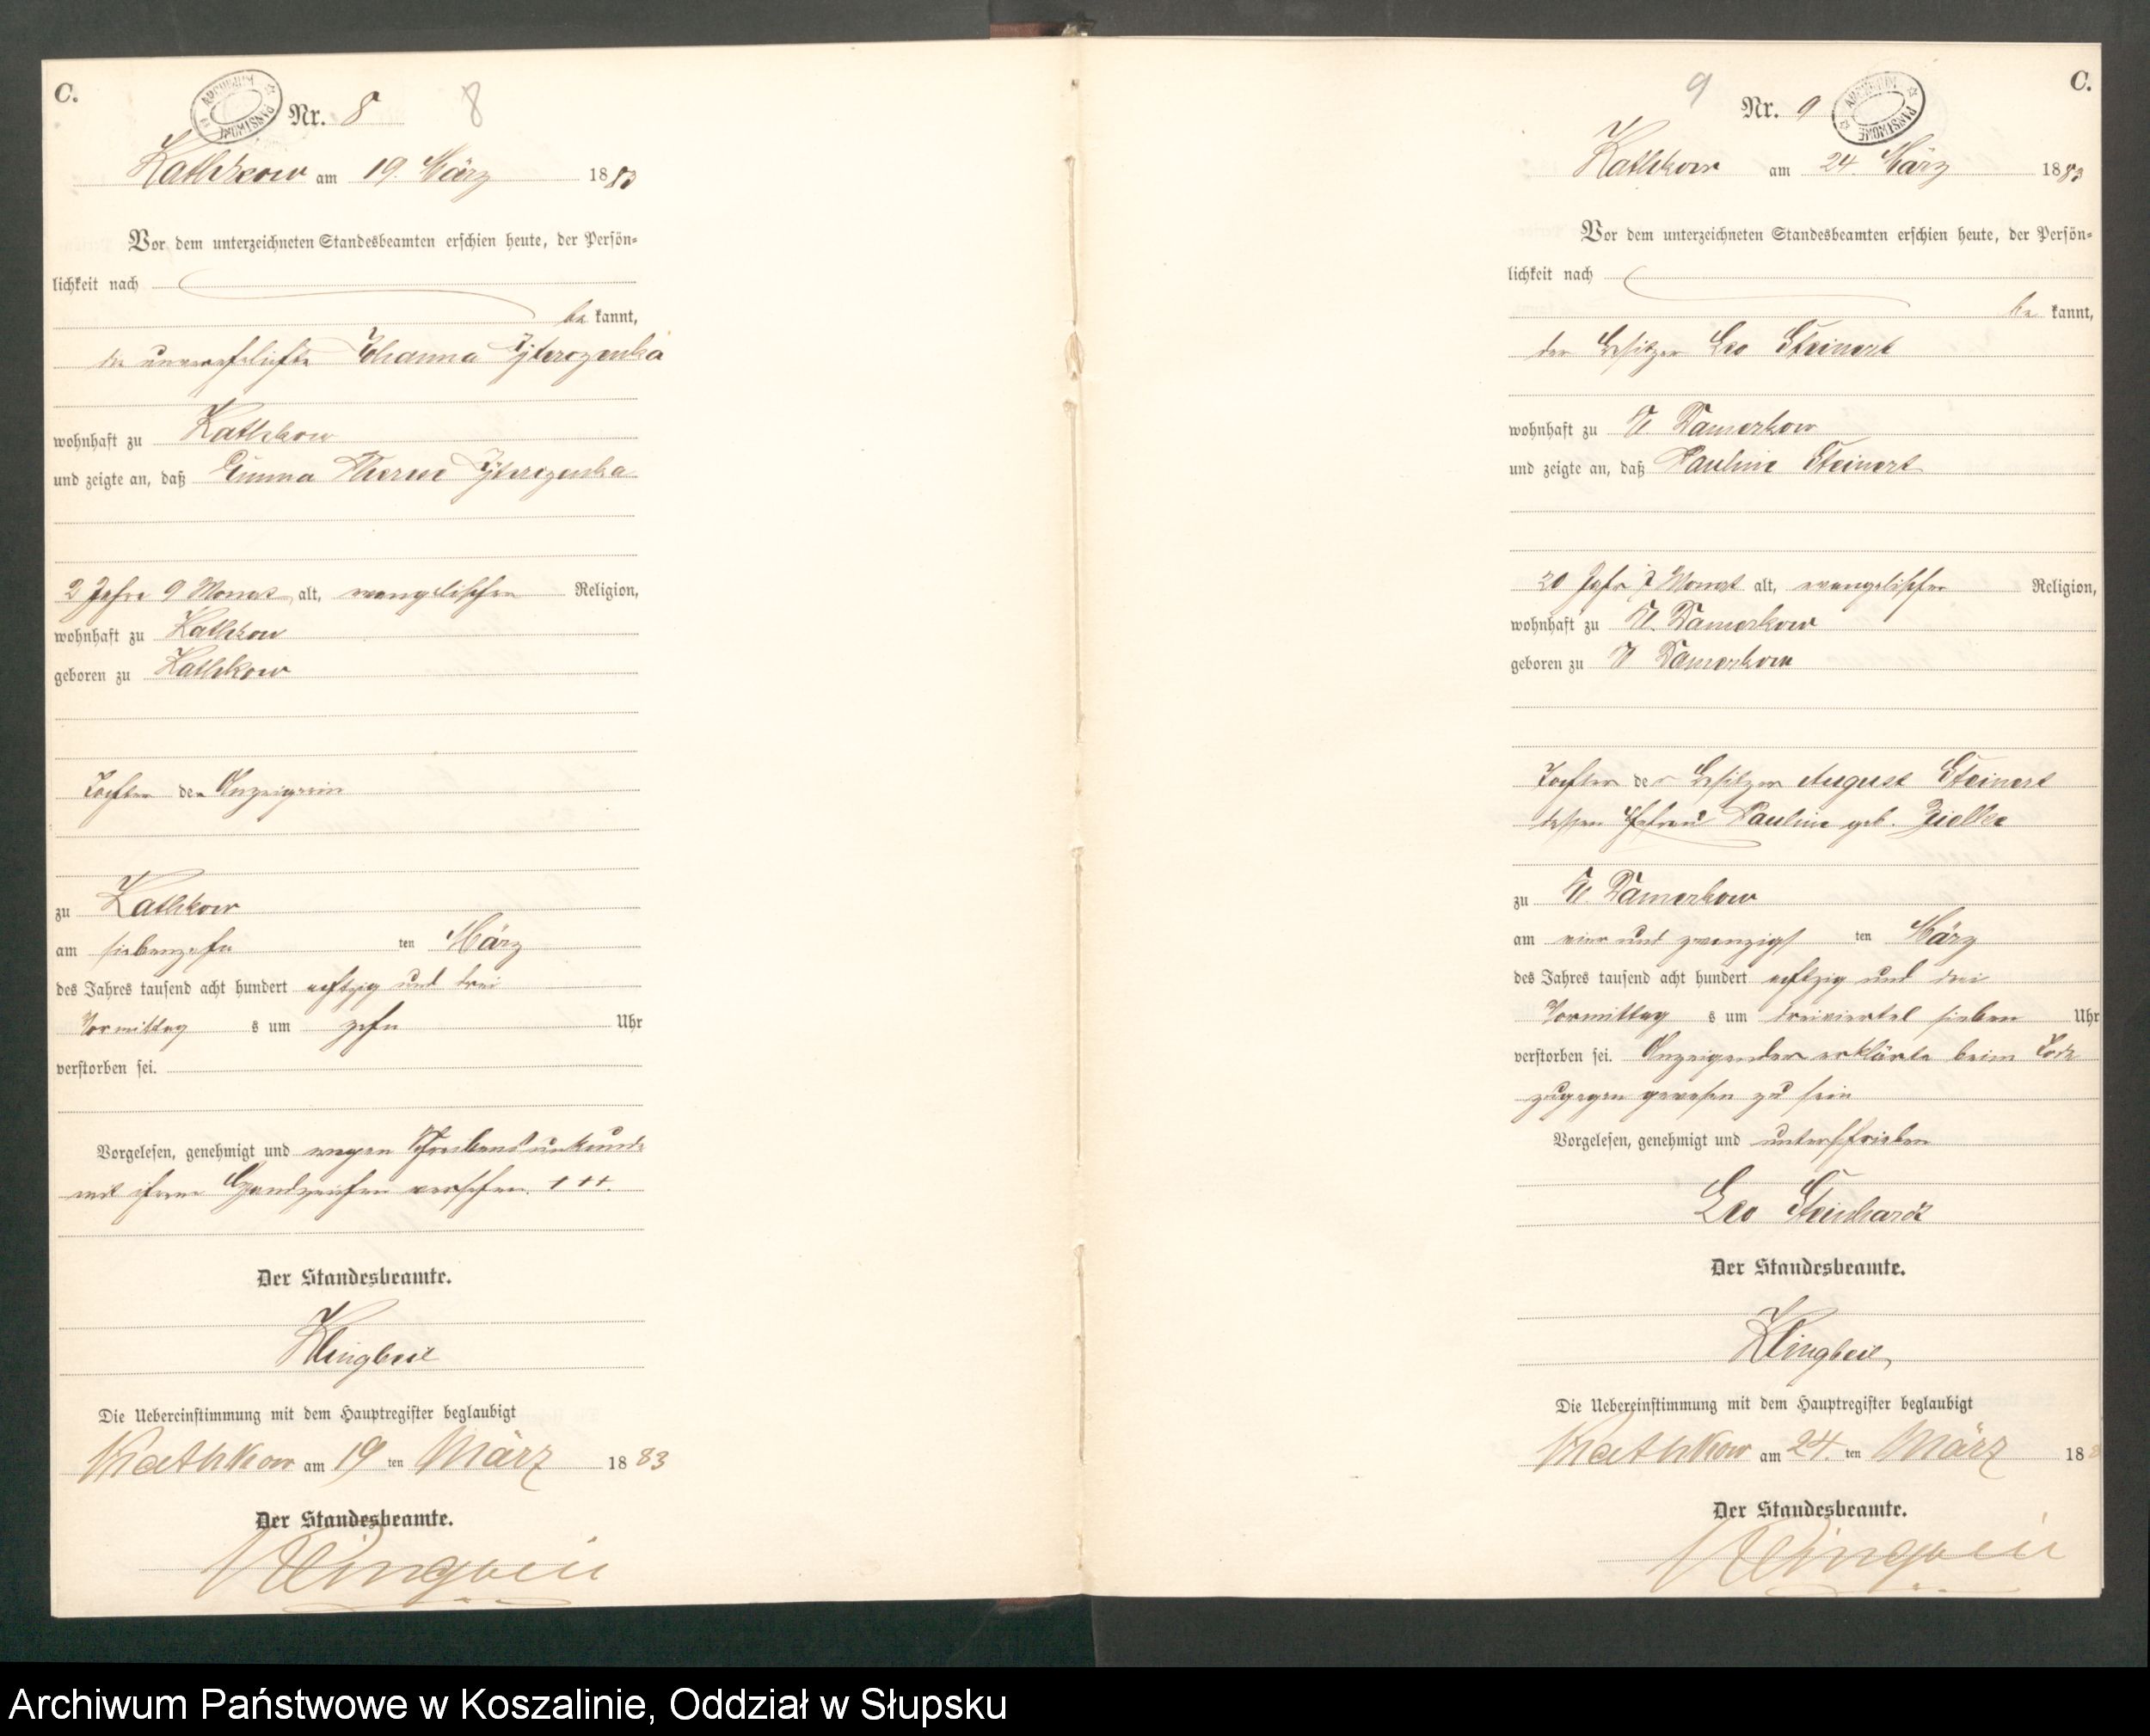 C.
Nr. 8
8
ARCHIWUM PAŃSTWOWE
Kathkow am 19. März 1883
Vor dem unterzeichneten Standesbeamten erschien heute, der Persön-
lichkeit nach
be kannt,
die unverehelichte Johanna
wohnhaft zu Kathkow
und zeigte an, daß Emma Therese
2 Jahre 9 Monat alt, evangelischen Religion,
wohnhaft zu Kathkow
geboren zu Kathkow
Tochter der Anzeigerin
zu Kathkow
am siebenzehn ten März
des Jahres tausend acht hundert achtzig und drei
Vormittag s um zehn Uhr
verstorben sei.
Vorgelesen, genehmigt und wegen Schreibensunkunde
mit ihrem Handzeichen versehen. +++.
Der Standesbeamte.
Klingbeil
Die Uebereinstimmung mit dem Hauptregister beglaubigt
Kathkow am 19 ten März 1883
Der Standesbeamte.
Klingbeil
C.
9
Nr. 9
ARCHIWUM PAŃSTWOWE
Kathkow am 24. März 1883
Vor dem unterzeichneten Standesbeamten erschien heute, der Persön-
lichkeit nach
be kannt,
der Besitzer Leo Steinert
wohnhaft zu Damerkow
und zeigte an, daß Pauline Steinert
20 Jahr 7 Monat alt, evangelischer Religion,
wohnhaft zu Damerkow
geboren zu Damerkow
Tochter der Besitzer August Steinert
dessen Ehefrau Pauline geb. Zielke
zu Damerkow
am vier und zwanzigs ten März
des Jahres tausend acht hundert achtzig und drei
Vormittag s um dreiviertel sieben Uhr
verstorben sei. Anzeigender erklärte beim Tode
zugegen gewesen zu sein
Vorgelesen, genehmigt und unterschrieben
Leo Steinhardt
Der Standesbeamte.
Klingbeil
Die Uebereinstimmung mit dem Hauptregister beglaubigt
Kathkow am 24. ten März 188
Der Standesbeamte.
Klingbeil
Archiwum Państwowe w Koszalinie, Oddział w Słupsku